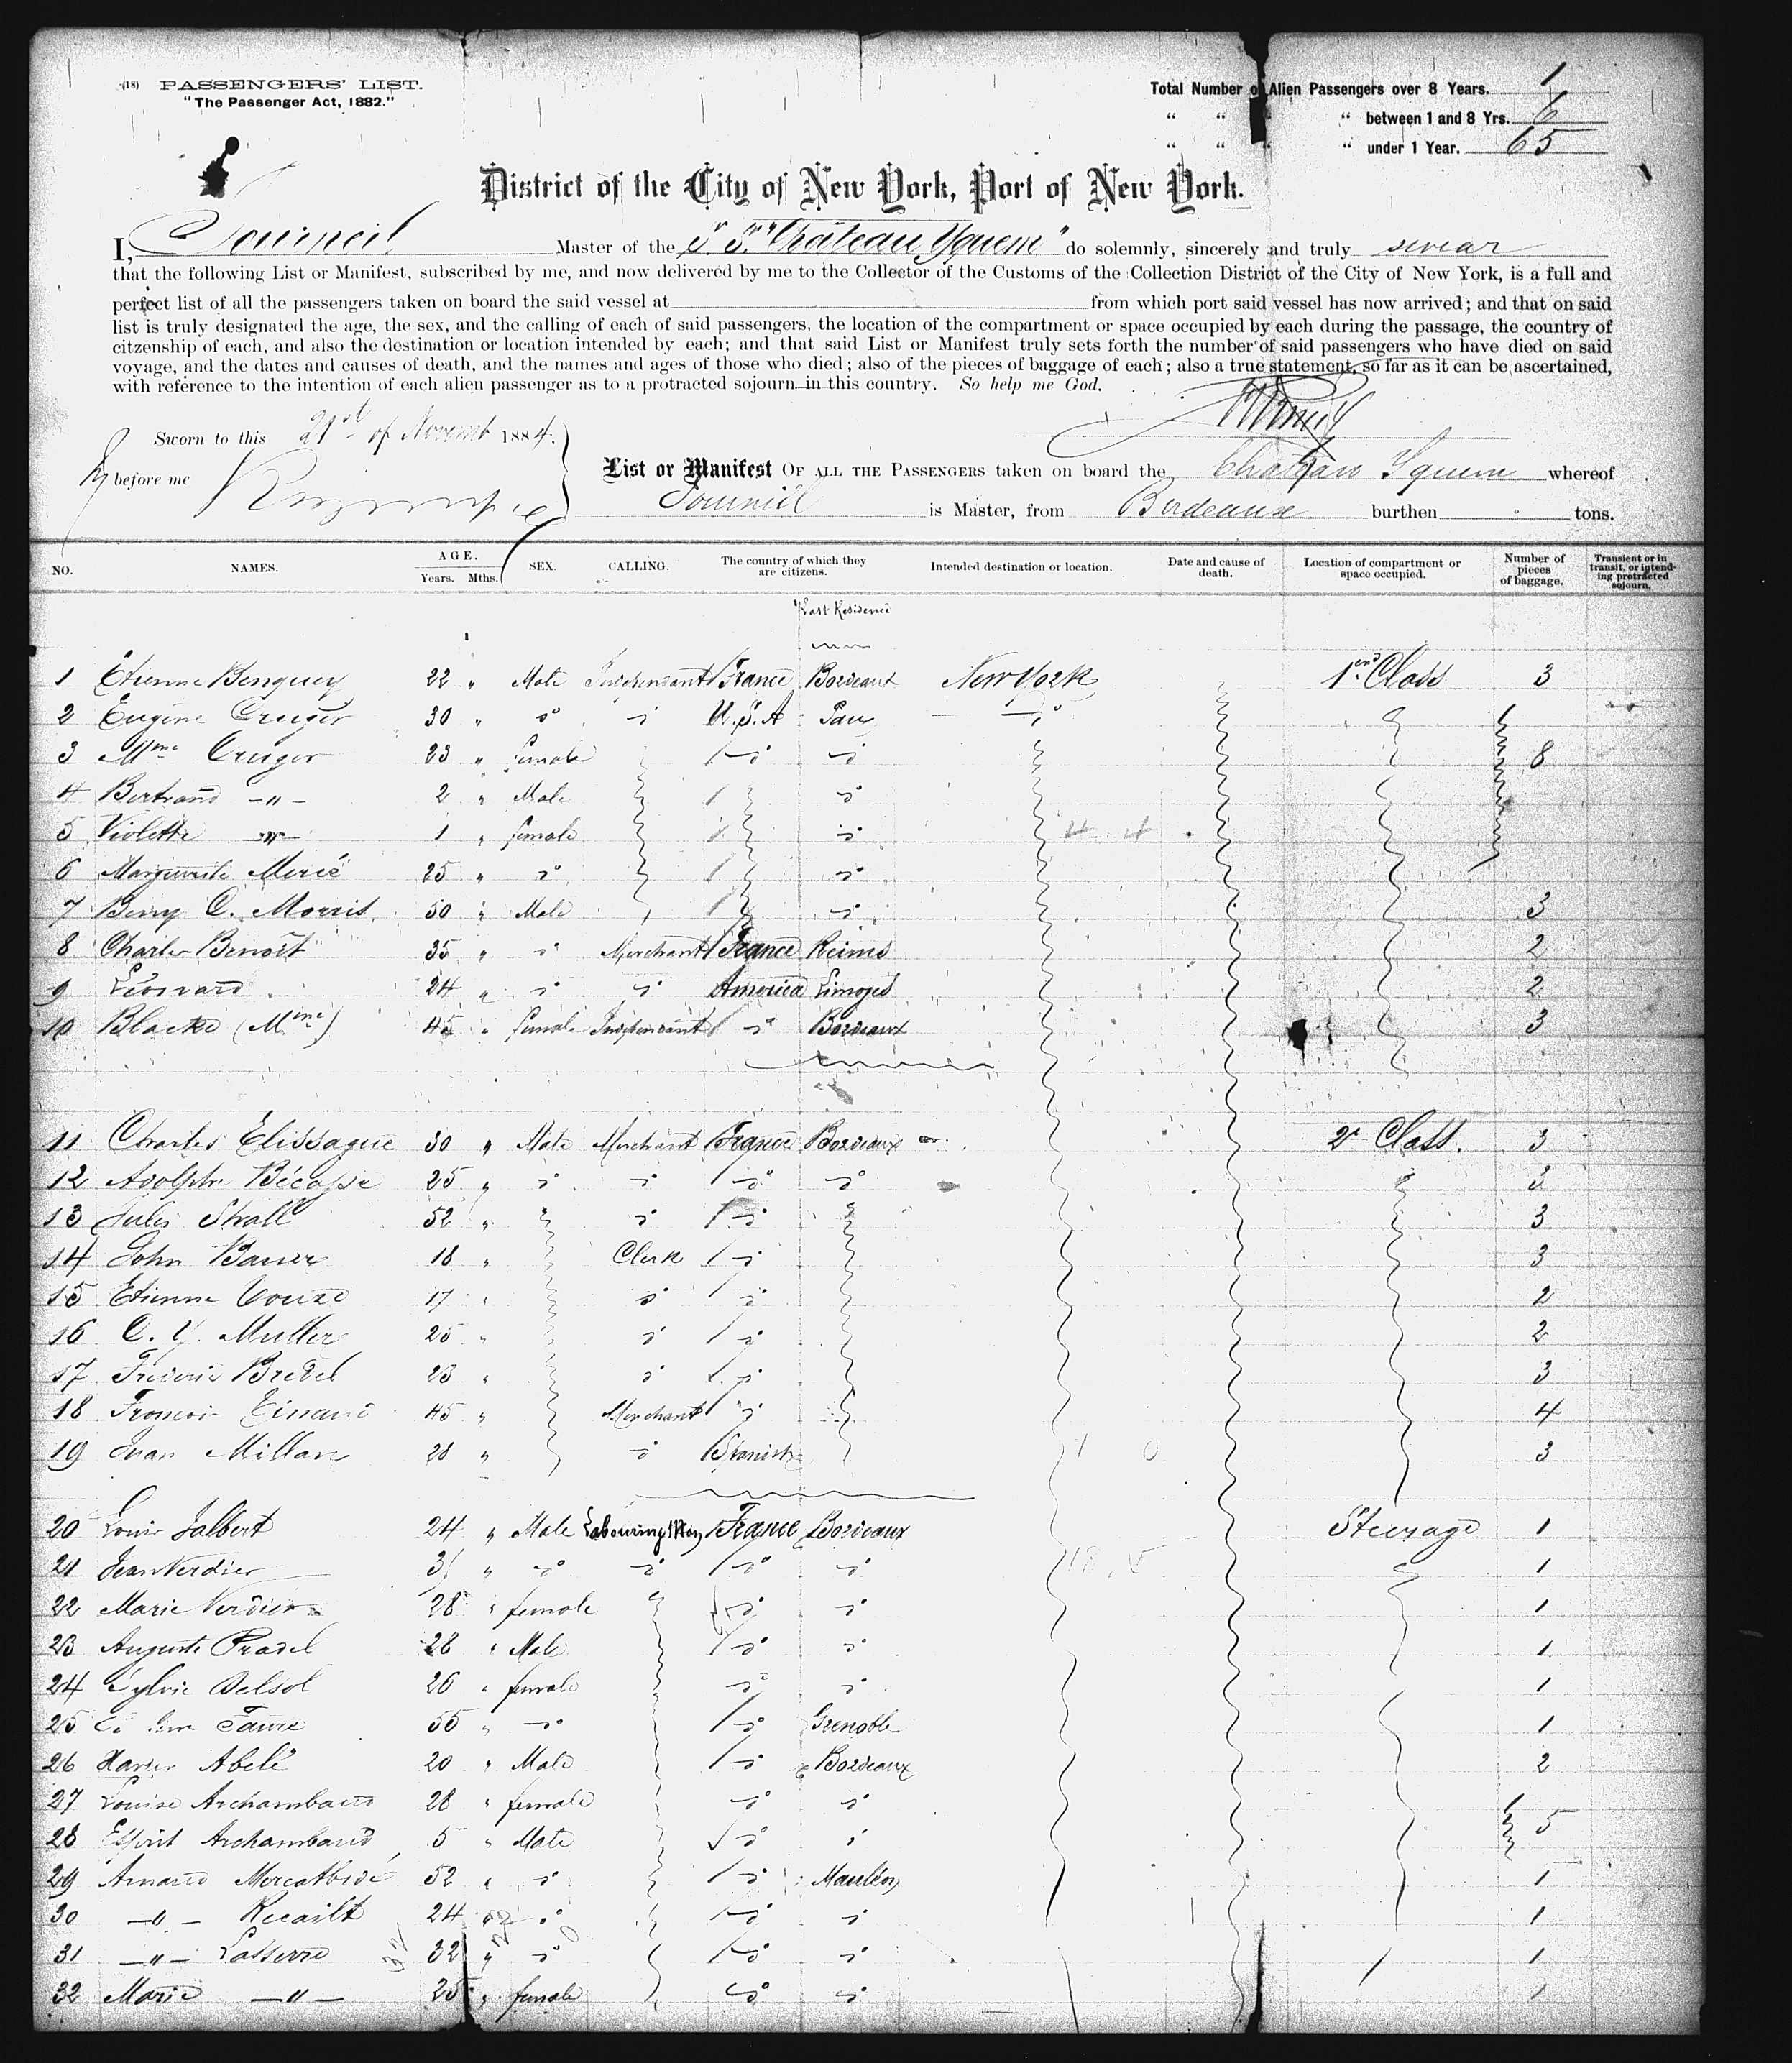 (18) PASSENGERS' LIST.
"The Passenger Act, 1882."
Total Number of Alien Passengers over 8 Years. 1
" " " " between 1 and 8 Yrs. 6
" " " " under 1 Year. 65
District of the City of New York, Port of New York.
I, Master of the S.S. "Château Yquem" do solemnly, sincerely and truly swear
that the following List or Manifest, subscribed by me, and now delivered by me to the Collector of the Customs of the Collection District of the City of New York, is a full and
perfect list of all the passengers taken on board the said vessel at from which port said vessel has now arrived; and that on said
list is truly designated the age, the sex, and the calling of each of said passengers, the location of the compartment or space occupied by each during the passage, the country of
citzenship of each, and also the destination or location intended by each; and that said List or Manifest truly sets forth the number of said passengers who have died on said
voyage, and the dates and causes of death, and the names and ages of those who died; also of the pieces of baggage of each; also a true statement, so far as it can be ascertained,
with reference to the intention of each alien passenger as to a protracted sojourn in this country. So help me God.
Sworn to this 21st of Novemb 1884.
before me
List or Manifest OF ALL THE PASSENGERS taken on board the Chateau Yquem whereof
is Master, from Bordeaux burthen tons.
NO. NAMES. AGE. Years. Mths. SEX. CALLING. The country of which they are citizens. Intended destination or location. Date and cause of death. Location of compartment or space occupied. Number of pieces of baggage. Transient or in transit, or intending protracted sojourn.
Last Residence
1 Etienne Benquey 22 " Male Independant France Bordeaux New York 1re Class 3
2 Eugène Cruger 30 " do do U.S.A Pau do
3 Mme Cruger 23 " female do do 8
4 Bertrand -"- 2 " Male do
5 Violette -"- 1 " female do
6 Marguerite 25 " do do
7 Berry C. Morris 50 " Male do 3
8 Charles Benoît 35 " do Merchant France Reims 2
9 Léonard 24 " do do America Limoges 2
10 Blacke (Mme) 45 " female Independant do Bordeaux 3
11 Charles Elissague 30 " Male Merchant France Bordeaux 2e Class. 3
12 Adolphe Bécasse 25 " do do do do 3
13 Jules Strall 52 " do do 3
14 John Bauer 18 " Clerk do 3
15 Etienne 17 " do do 2
16 C. Y. Muller 25 " do do 2
17 Frederic Bredel 23 " do do 3
18 Francois 45 " Merchant do 4
19 Juan Millan 28 " do Spanish 3
20 Louis Jalbert 24 " Male Labouring Man France Bordeaux Steerage 1
21 Jean Verdier 31 " do do do do 1
22 Marie Verdier 28 " female do do 1
23 Auguste Pradel 28 " Male do do 1
24 Sylvie Delsol 26 " female do do 1
25 Faure 55 " do do Grenoble 1
26 Xavier Abelé 20 " Male do Bordeaux 2
27 Louise Archambaud 28 " female do do
28 Esprit Archambaud 5 " Male do do 5
29 Arnaud 52 " do do Mauléon 1
30 -"- Recailt 24 " do do do 1
31 -"- Lasserre 32 " do do do 1
32 Marie -"- 25 " female do do 1